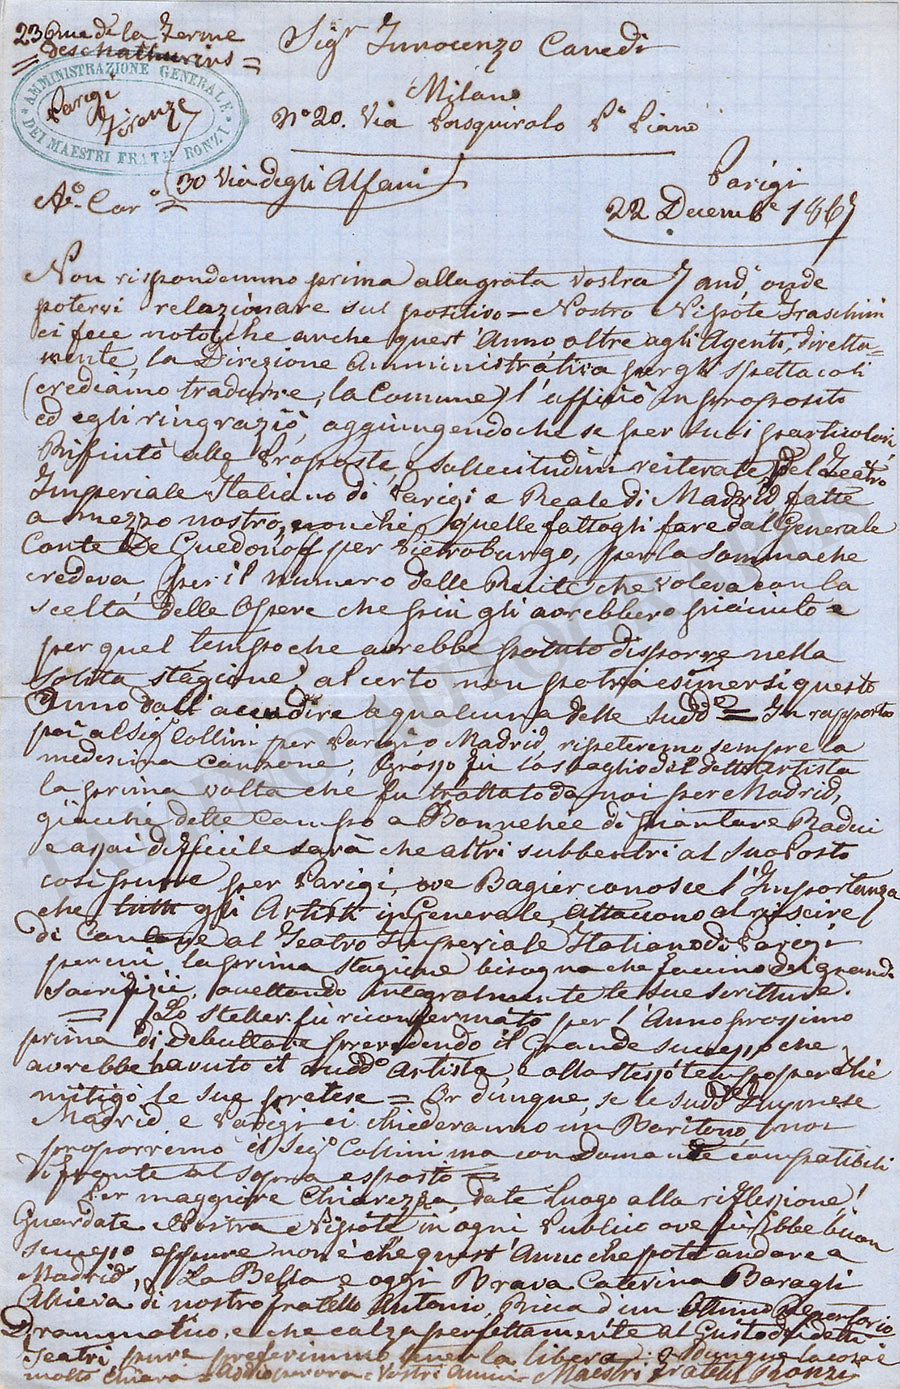 236 rue de la Ferme
des Mathurins
Sigr Innocenzo Canedi
Milano
No 20. Via Pasquirolo Po Piano
AMMINISTRAZIONE GENERALE
DEI MAESTRI FRATLI RONZI
Parigi
Firenze
30 Via degli Alfani
Ao. Caro
Parigi
22 Decembe 1867
Non rispondemmo prima alla grata vostra 7 andte onde
potervi relazionare sul positivo = Nostro Nipote Fraschini
ci fece noto, che anche quest'Anno, oltre agli Agenti, diretta-
mente, la Direzione Amministrativa per gli spettacoli
(crediamo tradurre, la Comune) l'officiò in proposito
ed egli ringraziò, aggiungendo che se per suoi particolari
Rifiutò alle Proposte, e sollecitudini reiterate del Teatro
Imperiale Italiano di Parigi e Reale di Madrid fatte
a mezzo nostro, nonché quelle fattogli fare dal Generale
Conte De Guedonoff per Pietroburgo, per la somma che
credeva, per il numero delle Recite che voleva con la
scelta delle Opere che più gli avrebbero piaciuto e
per quel tempo che avrebbe potuto disporre nella
solita stagione, al certo non potrà esimersi questo
Anno dall'accudire a qualcuna delle sudde = In rapporto
poi al Sigr Collini per Parigi o Madrid, ripeteremo sempre la
medesima canzone, Grosso fù lo sbaglio del detto Artista
la prima volta che fu trattato da noi per Madrid,
giacché delle Campo a Bonnehée di piantare Radici
e assai difficile sarà che altri subbentri al suo Posto
così pure per Parigi, ove Bagier conosce l'Importanza
che tutti gli Artisti in Generale, attaccono al riuscire
di Cantare al Teatro Imperiale Italiano di Parigi
per cui la prima stagione bisogna che faccino dei grandi
sacrifizii, accettando integralmente le sue scritture.
= Lo Steller fù riconfermato per l'Anno prossimo
prima di Debuttare prevedendo il Grande successo che
avrebbe havuto il suddo Artista, e allo stesso tempo perché
mitigò le sue pretese = Or dunque, se le sudde Imprese
Madrid e Parigi ci chiederanno un Baritono, noi
proporremo il Sigr Collini ma con Domande compatibili
di fronte al sopra esposto =
Per maggiore Chiarezza, date luogo alla riflessione!
Guardate Nostra Nipote in ogni Pubblico ove fù Ebbe buon
successo eppure non è che quest'Anno che potè andare a
Madrid, La Bella e oggi Brava Caterina Baragli
Allieva di nostro fratello Antonio, Ricca d'un Ottimo Repertorio
Drammatico, e che calza perfettamente al Gusto di detti
Teatri, pure preferimmo tener la libera: Dunque la cosa è
molto chiara Addio per ora Vostri Amici Maestri Fratelli Ronzi